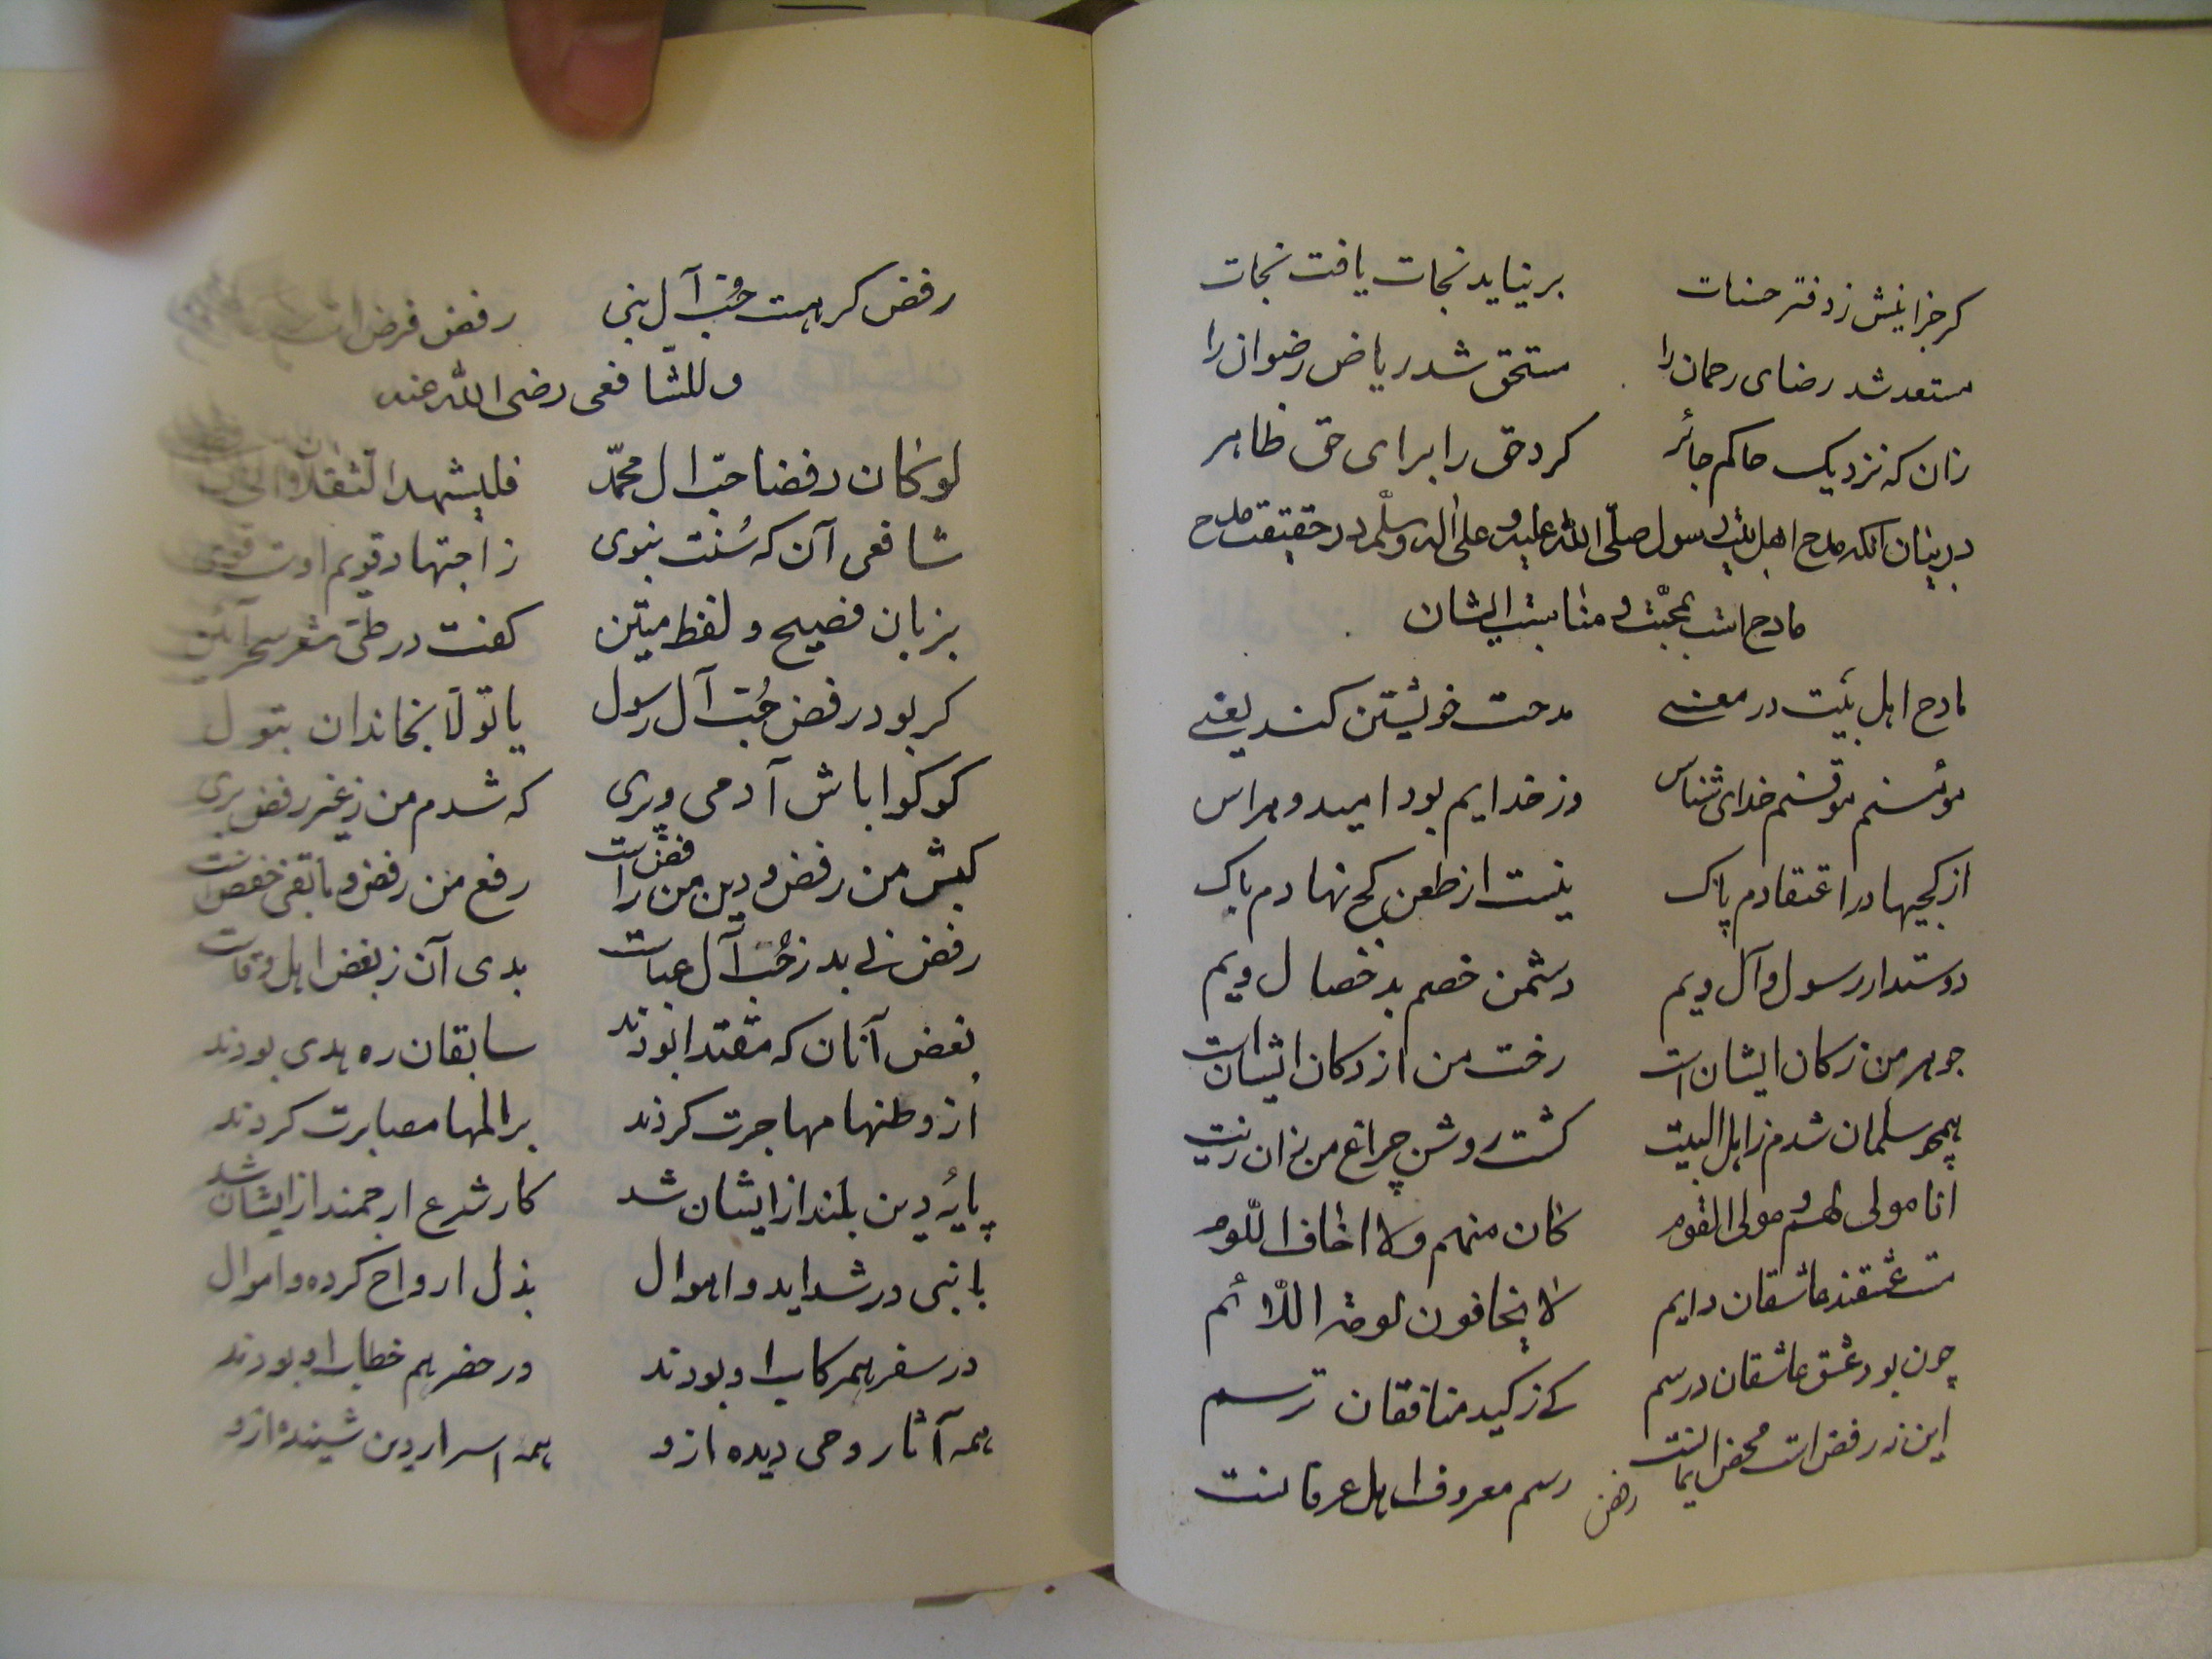 کر جز اینش ز دفتر حسنات برنیاید نجات یافت نجات
مستعد شد رضای رحمان را مستحق شد ریاض رضوان را
زان که نزدیک حاکم جائر کرد حق را برای حق ظاهر
در بیان آنکه مدح اهل بیت رسول صلّی الله علیه و علی اله و سلّم در حقیقت مدح
مادح است بمحبّت و مناسبت ایشان
مادح اهل بیت در معنی مدحت خویشتن کند یعنی
مؤمنم موقنم خدای شناس وز خدایم بود امید و هراس
از کجیها در اعتقادم پاک نیست از طعن کج نهادم باک
دوستدار رسول و آل ویم دشمن خصم بد خصال ویم
جوهر من ز کان ایشان است رخت من از دکان ایشان است
همچو سلمان شدم ز اهل البیت کشت روشن چراغ من زان زیت
انا مولی لهم و مولی القوم کان منهم ولا اخاف اللّوم
مست عشقند عاشقان دایم لا یخافون لومة اللّائم
چون بود عشق عاشقان درسم کی ز کید منافقان ترسم
این نه رفض است محض ایمانست رسم معروف اهل عرفانست
رفض
رفض کر هست حُبّ آل نبی رفض فرض است
وللشّافعی رضی الله عنه
لو کان رفضا حبّ ال محمّد فلیشهد الثقلان
شافعی آن که سُنّت نبوی ز اجتهاد قویم اوست قوی
بزبان فصیح و لفظ متین کفت در طیّ شعر سحر آئین
کر بود رفض حُبّ آل رسول یا تولّا بخاندان بتول
کو کوا باش آدمی و پری که شدم من ز غیر رفض بری
کیش من رفض و دین من رفض است رفع من رفض و مابقی خفض است
رفض نی بد ز حُبّ آل عباست بدی آن ز بغض اهل وفاست
بغض آنان که مقتدا بودند سابقان ره هدی بودند
از وطنها مهاجرت کردند بر المها مصابرت کردند
پایۀ دین بلند از ایشان شد کار شرع ارجمند از ایشان شد
با نبی در شداید و اهوال بذل ارواح کرده و اموال
در سفر همرکاب او بودند در حضر هم خطاب او بودند
همه آثار وحی دیده ازو همه اسرار دین شنیده ازو